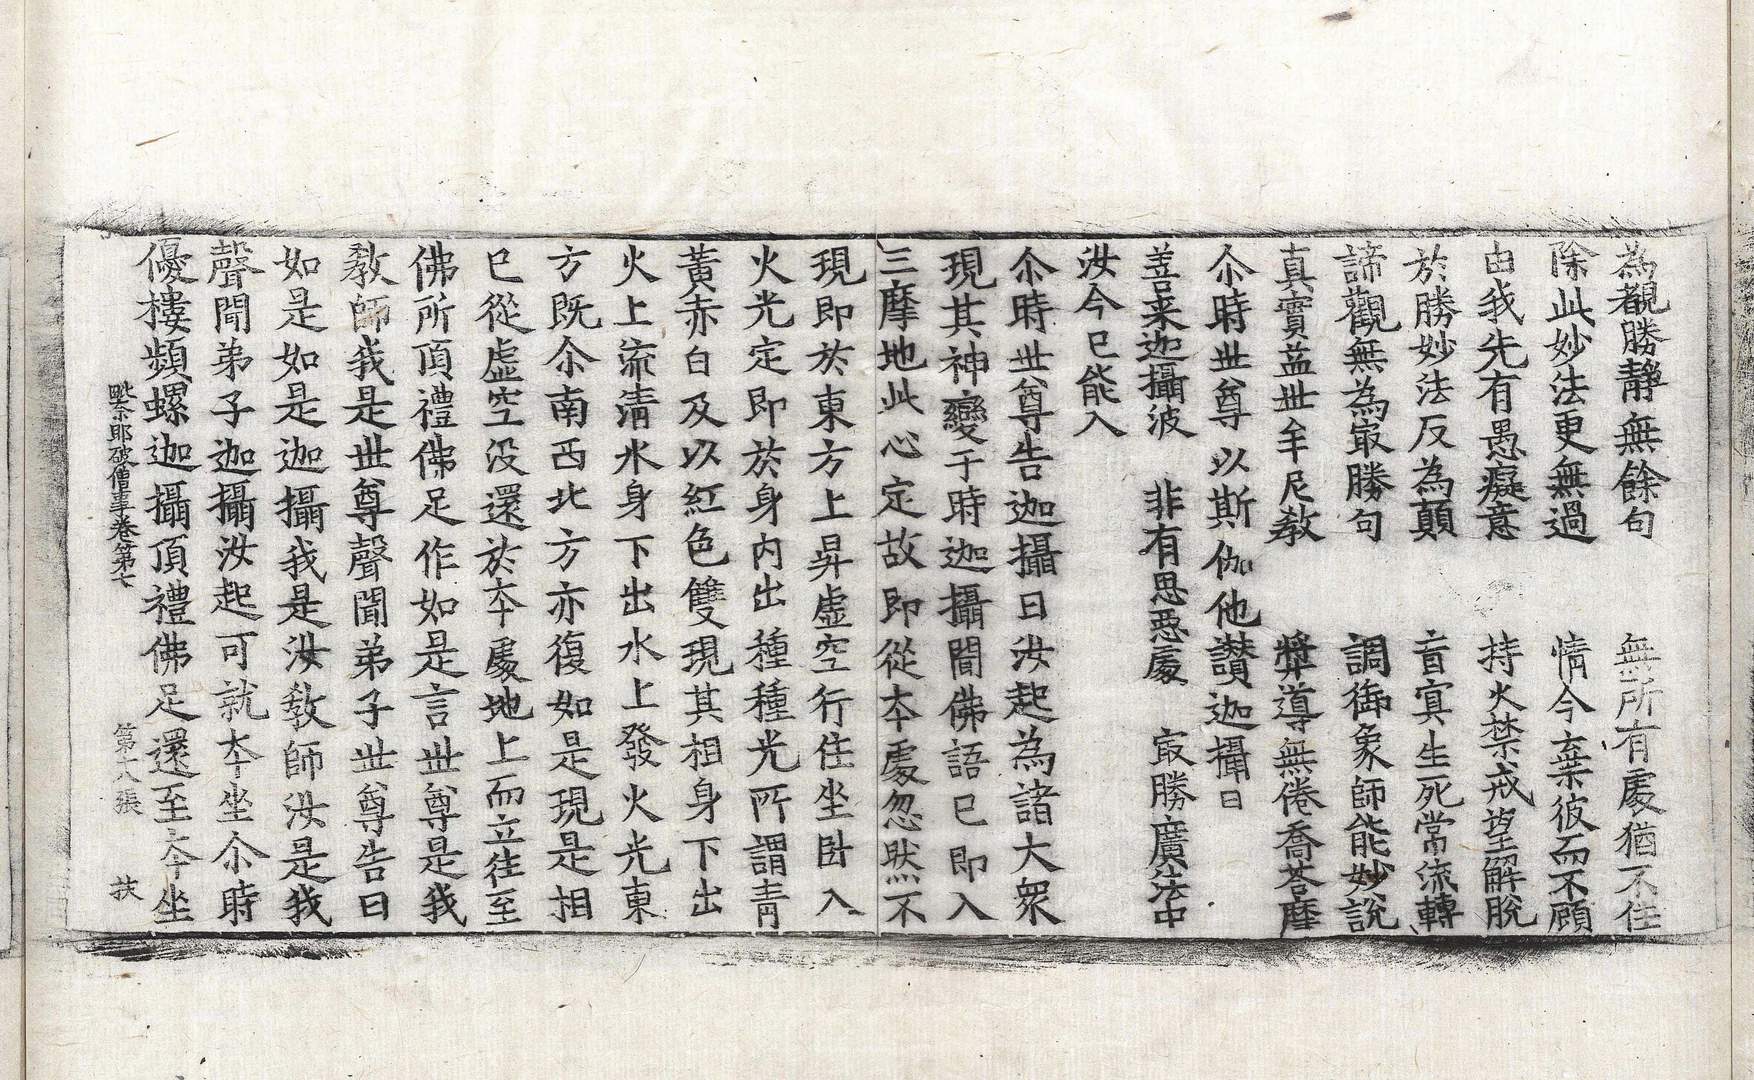 為覩勝静無餘句　無所有處猶不住
除此妙法更無過　情今棄彼而不顧
由我先有愚癡意　持火禁戒望解脫
於勝妙法反為顛　盲冥生死常流轉
諦觀無為㝡勝句　調御象師能妙說
真實益世牟尼教　弊導無倦喬荅摩
尒時世尊以斯伽他讃迦攝曰
善来迦攝波　非有思惡處　㝡勝廣流中
汝今已能入
尒時世尊告迦攝曰汝起為諸大衆
現其神變于時迦攝聞佛語已即入
三摩地此心定故即從夲處忽然不
現即於東方上昇虛空行住坐卧入
火光定即於身内出種種光所謂青
黃赤白及以紅色雙現其相身下出
火上流清水身下出水上發火光東
方既尒南西北方亦復如是現是相
已從虛空没還於夲處地上而立往至
佛所頂禮佛足作如是言世尊是我
教師我是世尊聲聞弟子世尊告曰
如是如是迦攝我是汝教師汝是我
聲聞弟子迦攝汝起可就夲坐尒時
優樓頻螺迦攝頂禮佛足還至夲坐
毗奈耶破僧事卷第七　第十八張　扶